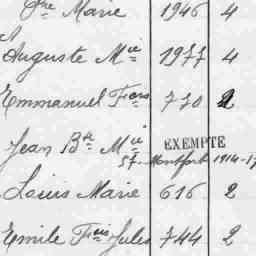 Pre Marie 1946 4
Auguste Mie 1977 4
Emmanuel Fcois 770 2
Jean Bte Mie EXEMPTE
St Montfort 1914-17
Louis Marie 616 2
Emile Fcois Jules 744 2